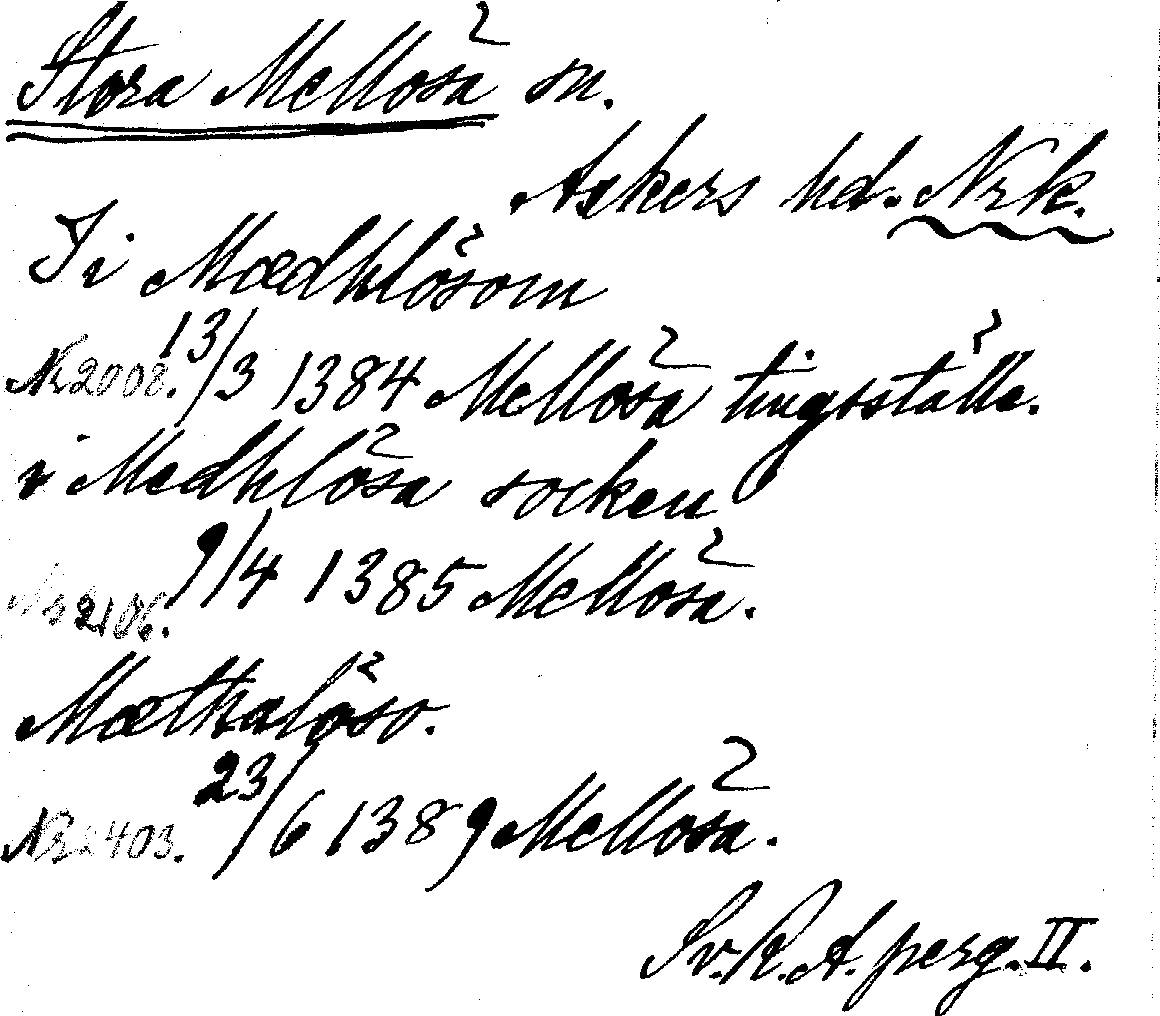 Stora Mellösa sn.
Askers hd. Nrk.
I i Mædhlösom
Nr 2008. 13/3 1384 Mellösa tingsställe.
i Medhlösa socken
Nr 2106. 9/4 1385 Mellösa.
Mæthalöso.
Nr 2403. 23/6 1389 Mellösa.
Sv. R. A. perg. II.